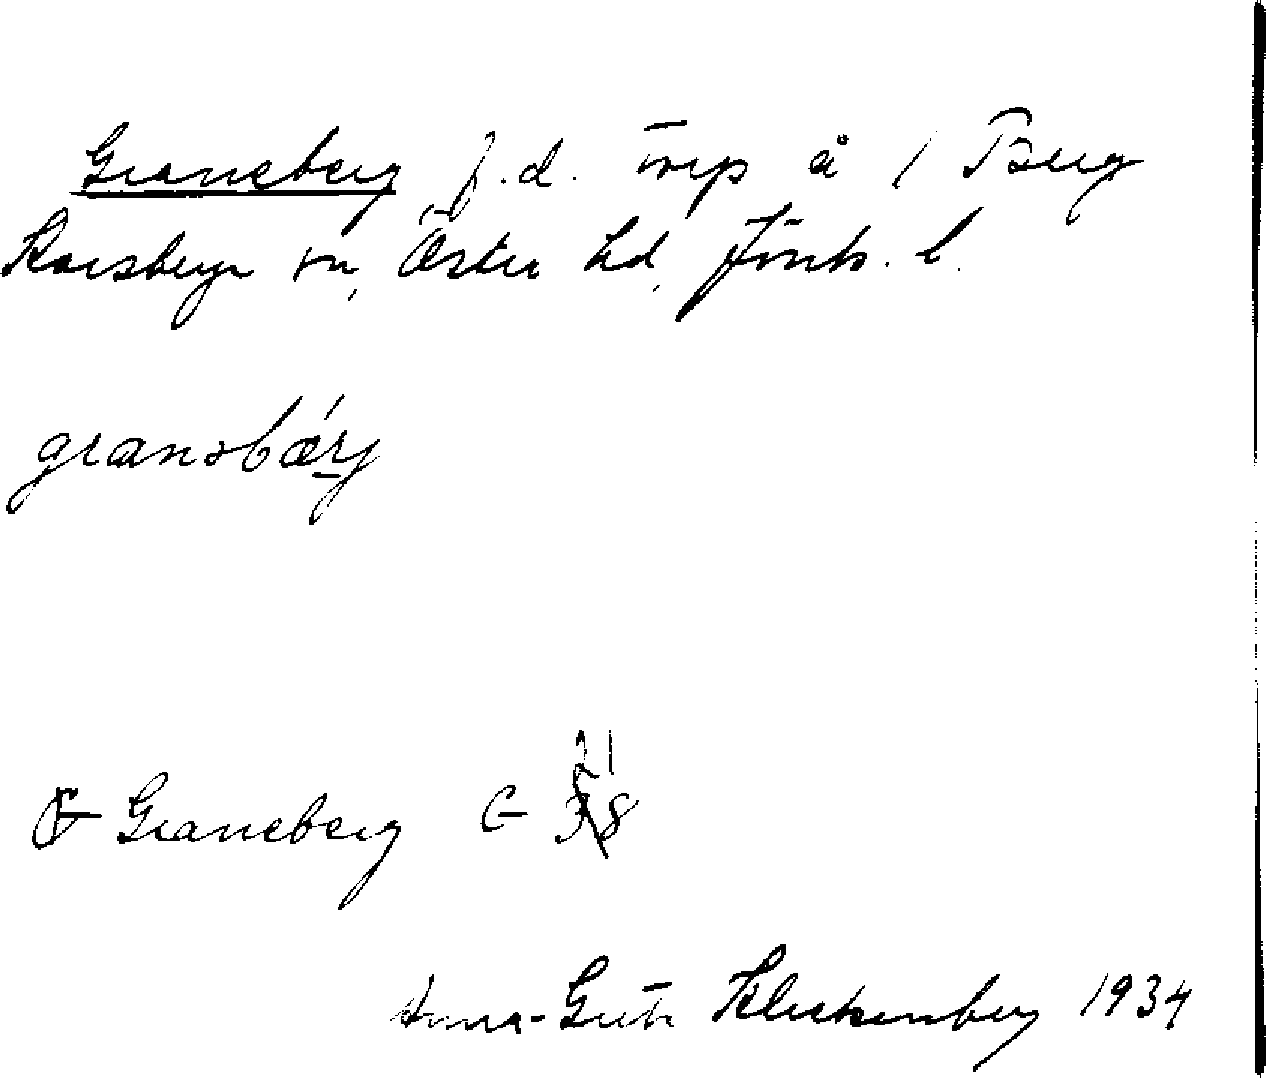 Graneberg f.d. torp å 1 Berg
Korsberga sn, Östra hd, Jönk. l.
granəbárj
G Graneberg G 21
Anna-Greta Kleckenberg 1934